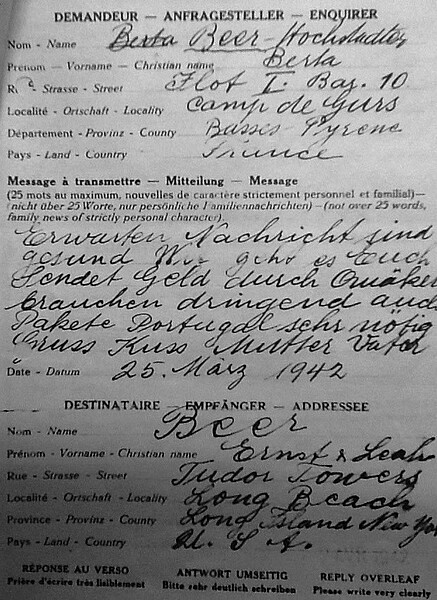 DEMANDEUR — ANFRAGESTELLER — ENQUIRER
Nom - Name Berta Beer-Hochstädter
Prénom — Vorname — Christian name Berta
Strasse - Street Ilot I. Bar. 10
Localité - Ortschaft - Locality Camp de Gurs
Département - Provinz - County Basses-Pyrene
Pays - Land - Country France
Message à transmettre — Mitteilung — Message
(25 mots au maximum, nouvelles de caractère strictement personnel et familial)—
(nicht über 25 Worte, nur persönliche Familiennachrichten)—(not over 25 words,
family news of strictly personal character).
Erwarten Nachricht sind
gesund Wie gehts es Euch
Sendet Geld durch Quäker
brauchen dringend auch
Pakete Portugal sehr nötig
Gruss Kuss Mutter Vater
Date - Datum 25. März 1942
DESTINATAIRE — EMPFÄNGER — ADDRESSEE
Nom - Name Beer
Prénom - Vorname - Christian name Ernst & Leah
Rue - Strasse - Street Tudor Towers
Localité - Ortschaft - Locality Long Beach
Province - Provinz - County Long Island New York
Pays - Land - Country U. S. A.
RÉPONSE AU VERSO ANTWORT UMSEITIG REPLY OVERLEAF
Prière d'écrire très lisiblement Bitte sehr deutlich schreiben Please write very clearly